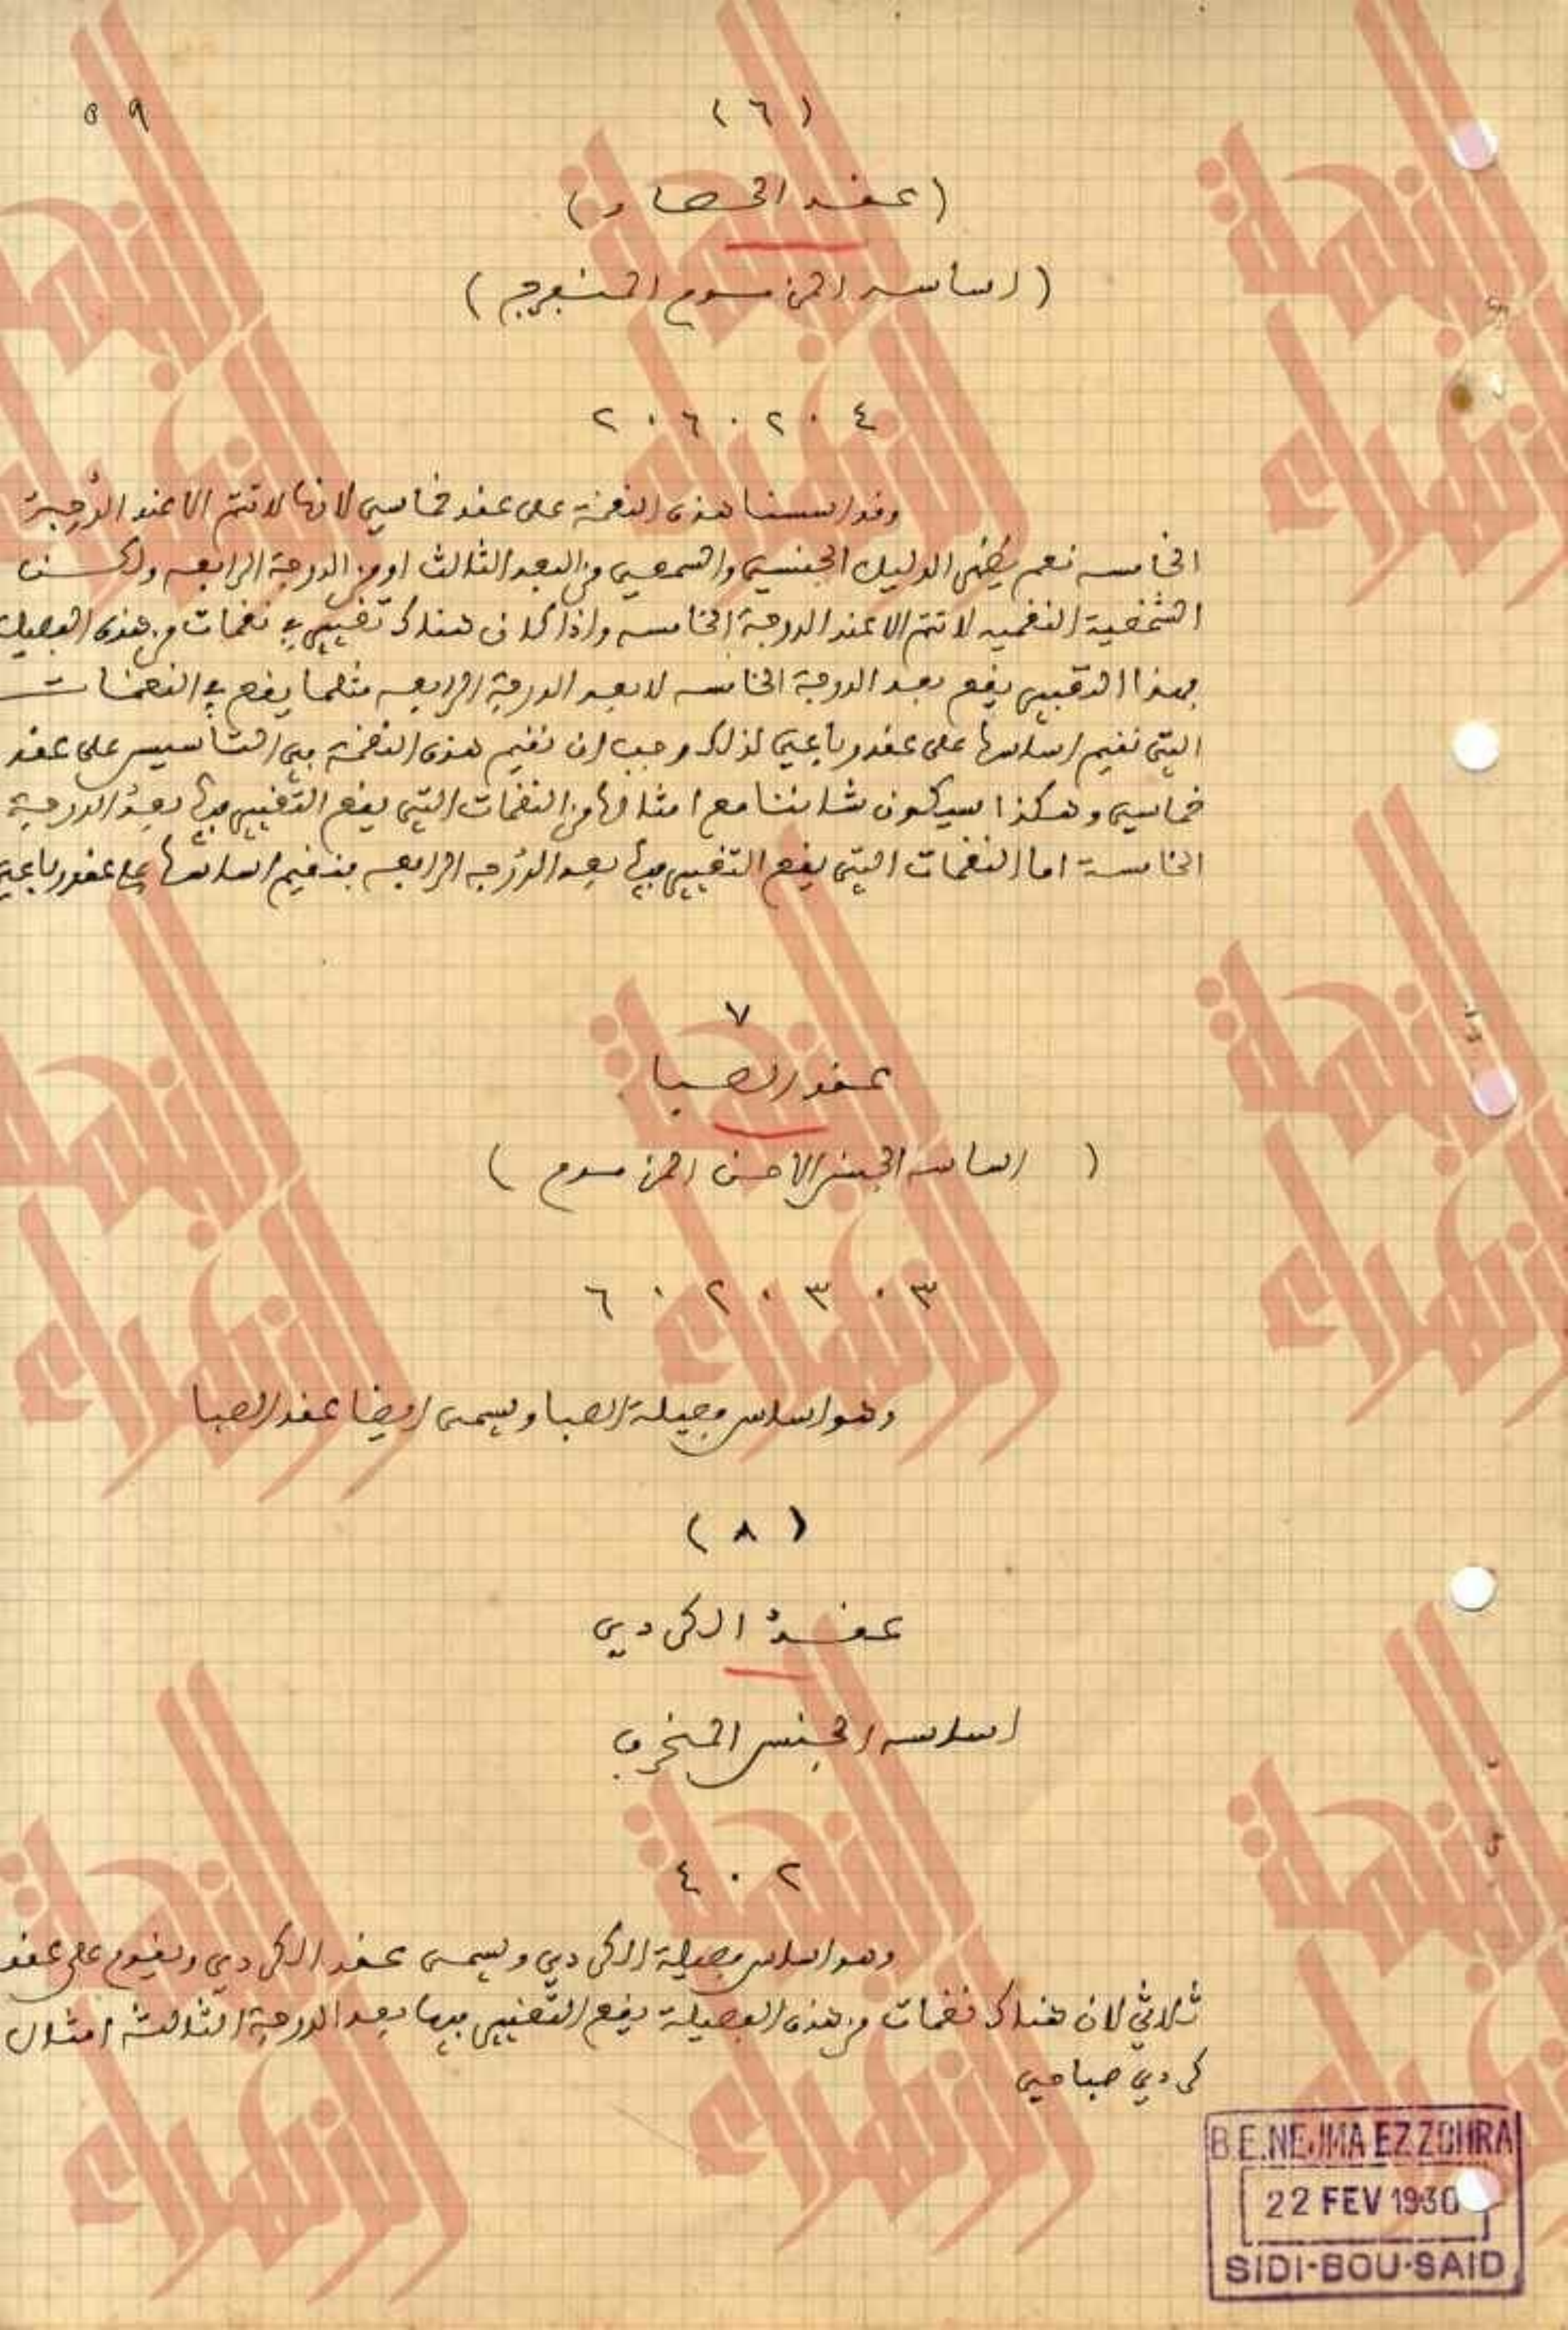 ٥٩
(٦)
(عقد الحصار)
(اساسه المزموم المنفرج)
٤ . ٢ . ٦ . ٢
وقد اسسنا هذه النغمة على عقد خماسي لانها لا تتم الا عند الدرجة
الخامسه نعم يظهر الدليل الجنسي والسمعي من البعد الثالث اومن الدرجة الرابعه ولكن
الشخصية النغميه لا تتم الا عند الدرجة الخامسه واذا كان هناك تغيير في نغمات من هذه الفصيلة
فهذا التغيير يقع بعد الدرجة الخامسه لا بعد الدرجة الرابعه مثلما يقع في النغمات
التي نقيم اساسها على عقد رباعي لذلك وجب ان نقيم هذه النغمة في التأسيس على عقد
خماسي وهكذا سيكون شاننا مع امثالها من النغمات التي يقع التغيير فيها بعد الدرجة
الخامسة اما النغمات التي يقع التغيير فيها بعد الدرجه الرابعه فنقيم اساسها على عقد رباعي
٧
عقد الصبا
(اساسه الجنس الاحن المزموم)
٣ . ٣ . ٢ . ٦
وهو اساس فصيلة الصبا ويسمى ايضا عقد الصبا
(٨)
عقد الكردي
اساسه الجنس المنحرف
٢ . ٤
وهو اساس فصيلة الكردي ويسمى عقد الكردي ويقوم على عقد
ثلاثي لان هناك نغمات من هذه الفصيلة يقع التغيير فيها بعد الدرجة الثالثة امثال
كردي صباحي
B.E.NEJMA EZZOHRA
22 FEV 1930
SIDI-BOU-SAID
النجمة الزهراء